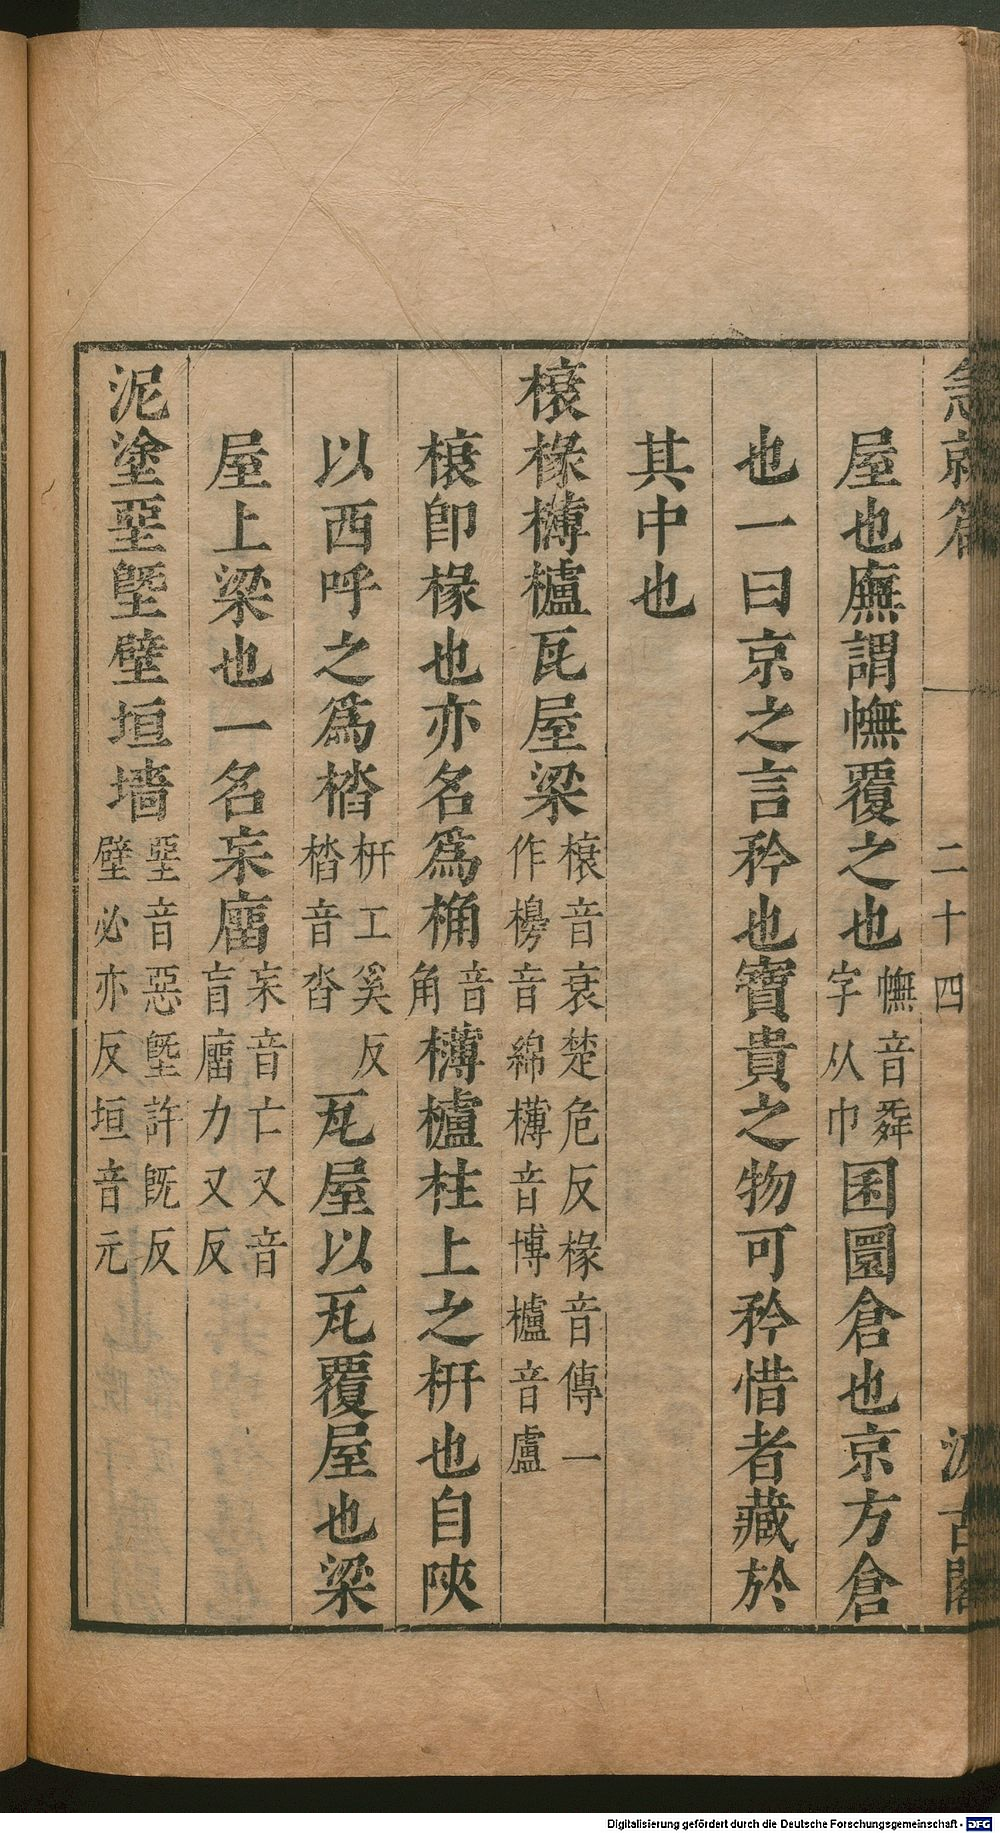 急就篇 二十四 汲古閣
屋也廡謂幠覆之也幠音舜字从巾囷圜倉也京方倉
也一曰京之言矜也寶貴之物可矜惜者藏於
其中也
榱椽欂櫨瓦屋梁榱音衰楚危反椽音傳一作櫋音綿欂音博櫨音盧
榱卽椽也亦名爲桷音角欂櫨柱上之枅也自陝
以西呼之爲楷枅工奚反楷音沓瓦屋以瓦覆屋也梁
屋上梁也一名杗廇杗音亡又音盲廇力又反
泥塗堊塈壁垣墻堊音惡塈許旣反壁必亦反垣音元
Digitalisierung gefördert durch die Deutsche Forschungsgemeinschaft - DFG